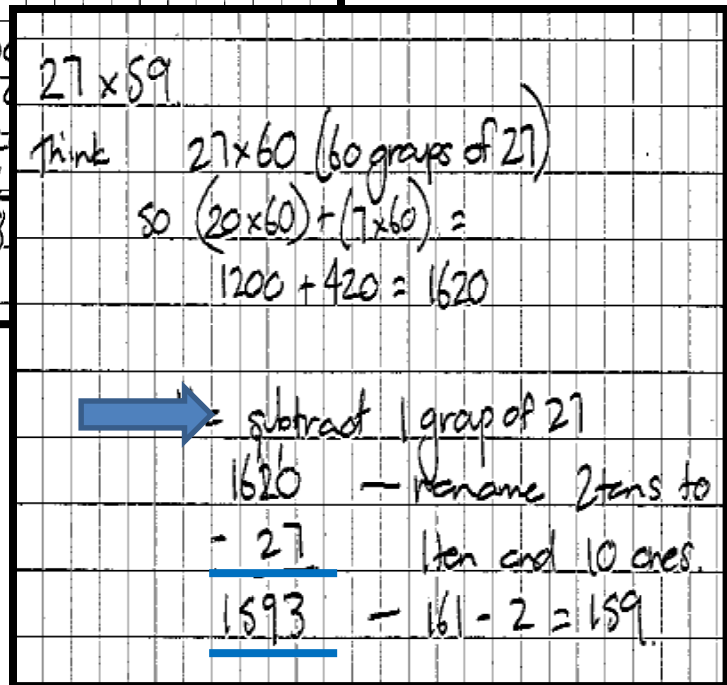 27 x 59
Think 27x60 (60 groups of 27)
so (20x60) + (7x60) =
1200 + 420 = 1620
= subtract 1 group of 27
1620 — rename 2 tens to
- 27 1 ten and 10 ones.
1593 — 161 - 2 = 159.